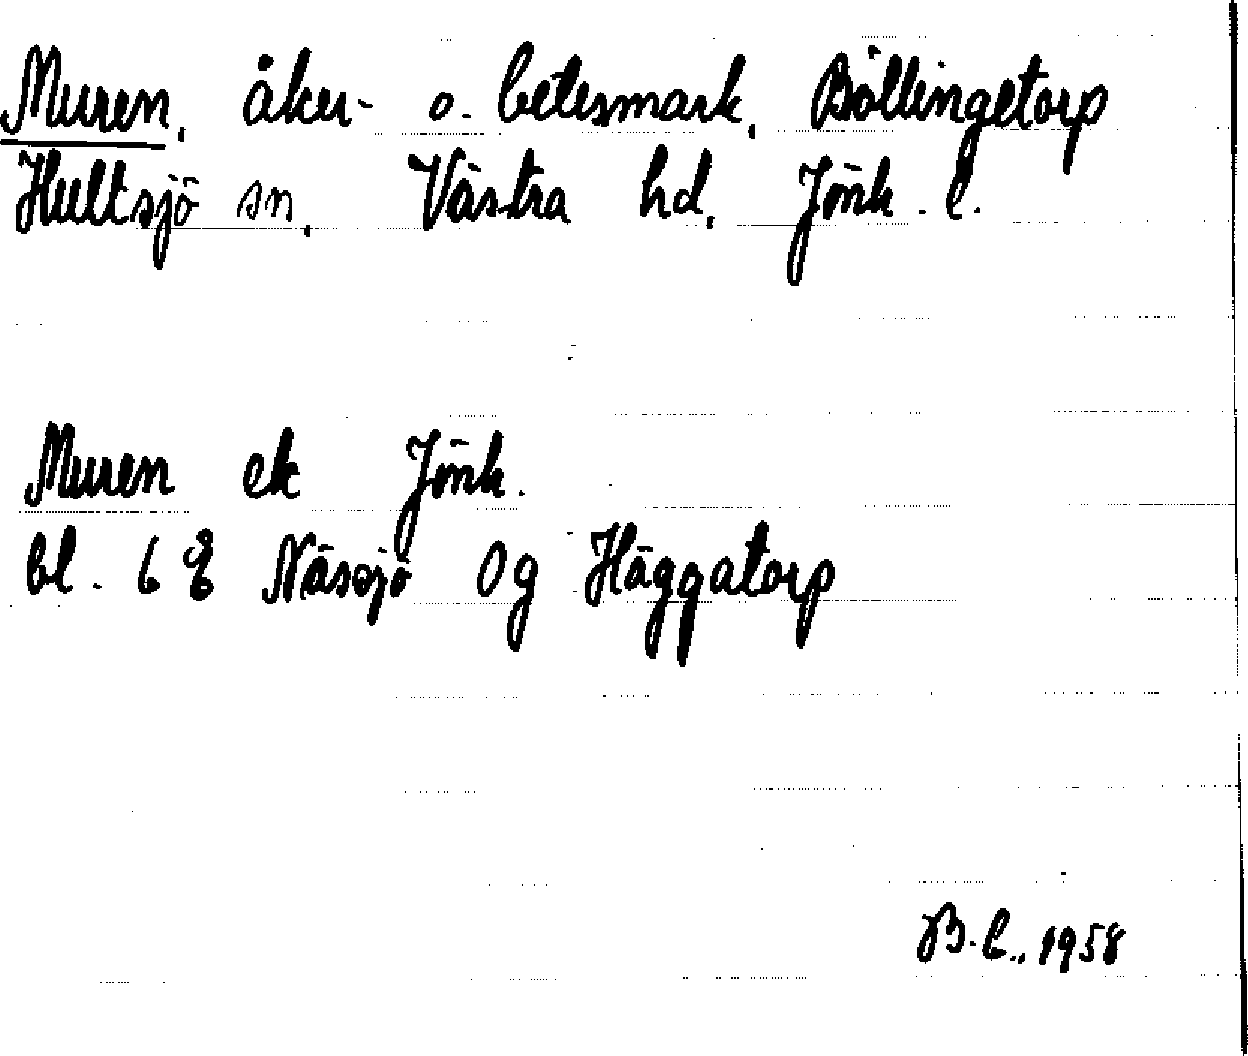 Muren, åker- o. betesmark, Böllingetorp
Hultsjö sn, Västra hd, Jönk. l.
Muren ek Jönk.
bl. 6 E Nässjö 0g Häggatorp
B. L., 1958